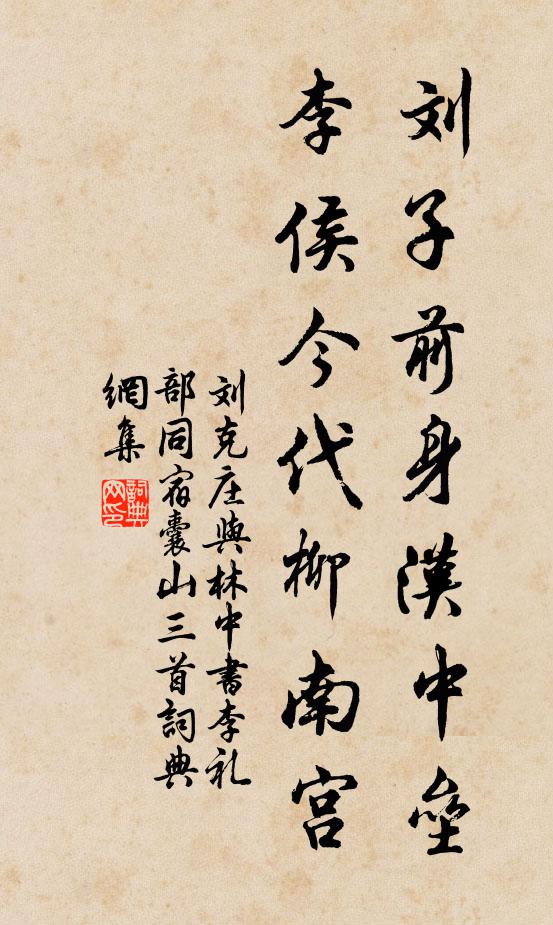 刘子前身漢中壘
李侯今代柳南宫
刘克庄與林中書李礼
部同宿囊山三首詞典
網集
詞典
网印